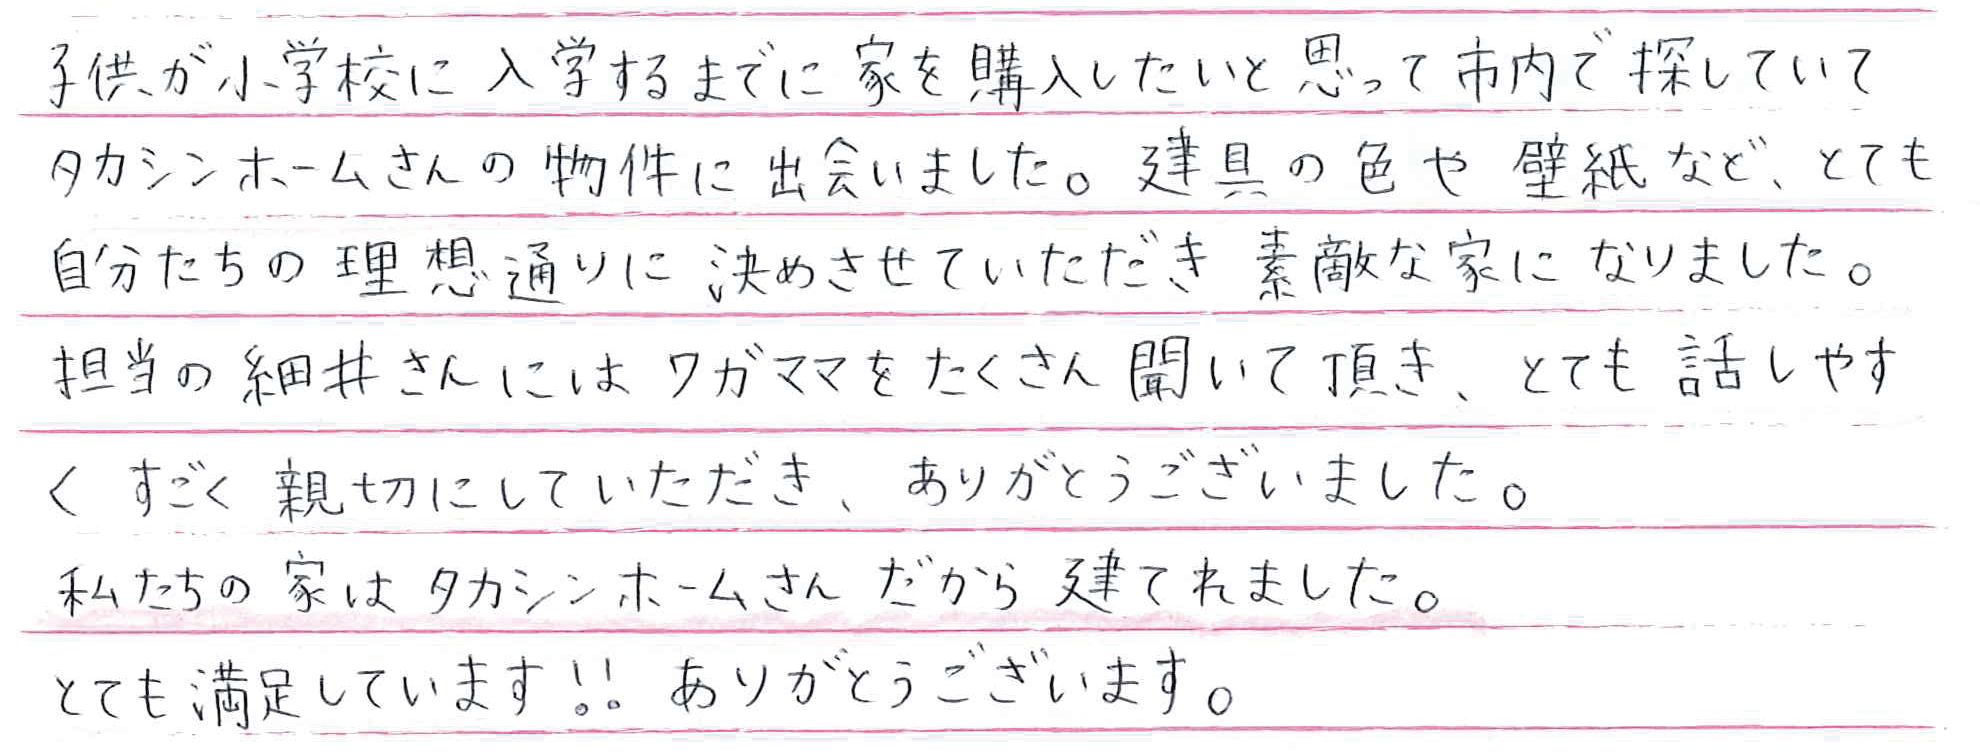 子供が小学校に入学するまでに家を購入したいと思って市内で探していて
タカシンホームさんの物件に出会いました。建具の色や壁紙など、とても
自分たちの理想通りに決めさせていただき素敵な家になりました。
担当の細井さんにはワガママをたくさん聞いて頂き、とても話しやす
くすごく親切にしていただき、ありがとうございました。
私たちの家はタカシンホームさんだから建てれました。
とても満足しています!!ありがとうございます。